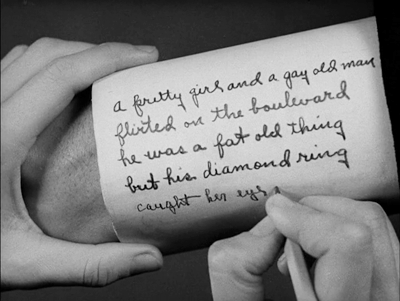 a pretty girl and a gay old man
flirted on the boulevard
he was a fat old thing
but his diamond ring
caught her eye